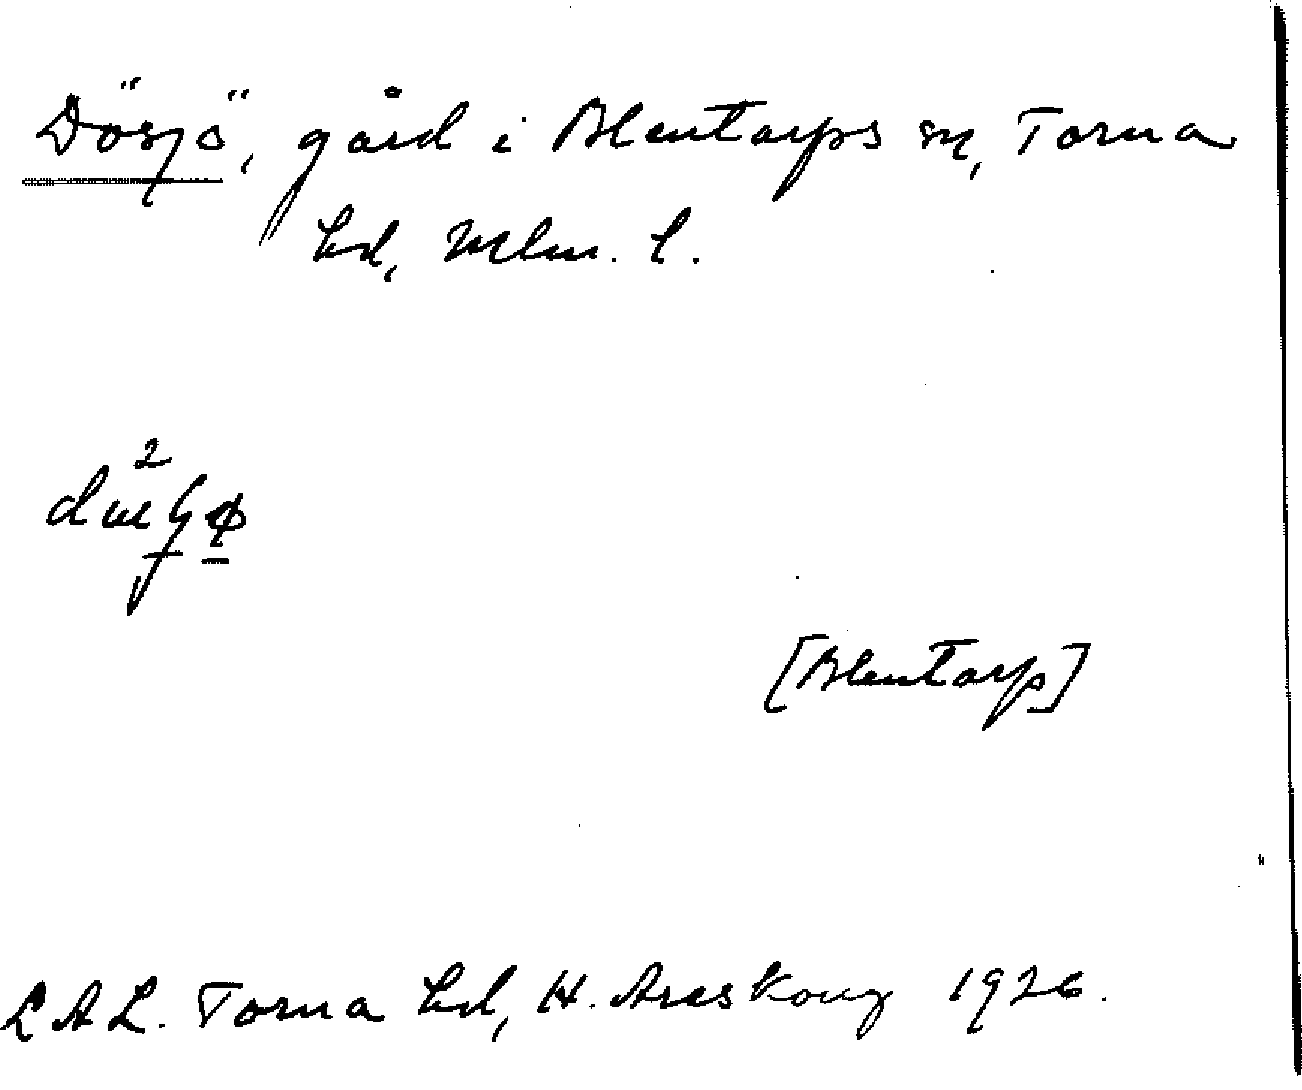 Dösjö, gård i Blentarps sn, Torna
hd, Mlm. l.
[Blentarp]
LAL. Torna hd, H. Areskoug 1926.